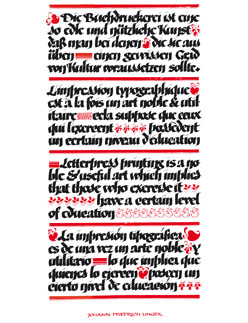 Die Buchdruckerei ist eine
so edle und nützliche Kunst
daß man bei denen die sie aus
üben einen gewissen Grad
von Kultur voraussetzen sollte.
L'impression typographique
est à la fois un art noble & util
itaire cela suppose que ceux
qui l'exercent possèdent
un certain niveau d'éducation
Letterpress printing is a no
ble & useful art which implies
that those who exercise it
have a certain level
of education
La impresión tipográfica
es de una vez un arte noble y
utilitario lo que implica que
quienes lo ejercen posean un
cierto nivel de educación
JOHANN FRIEDRICH UNGER